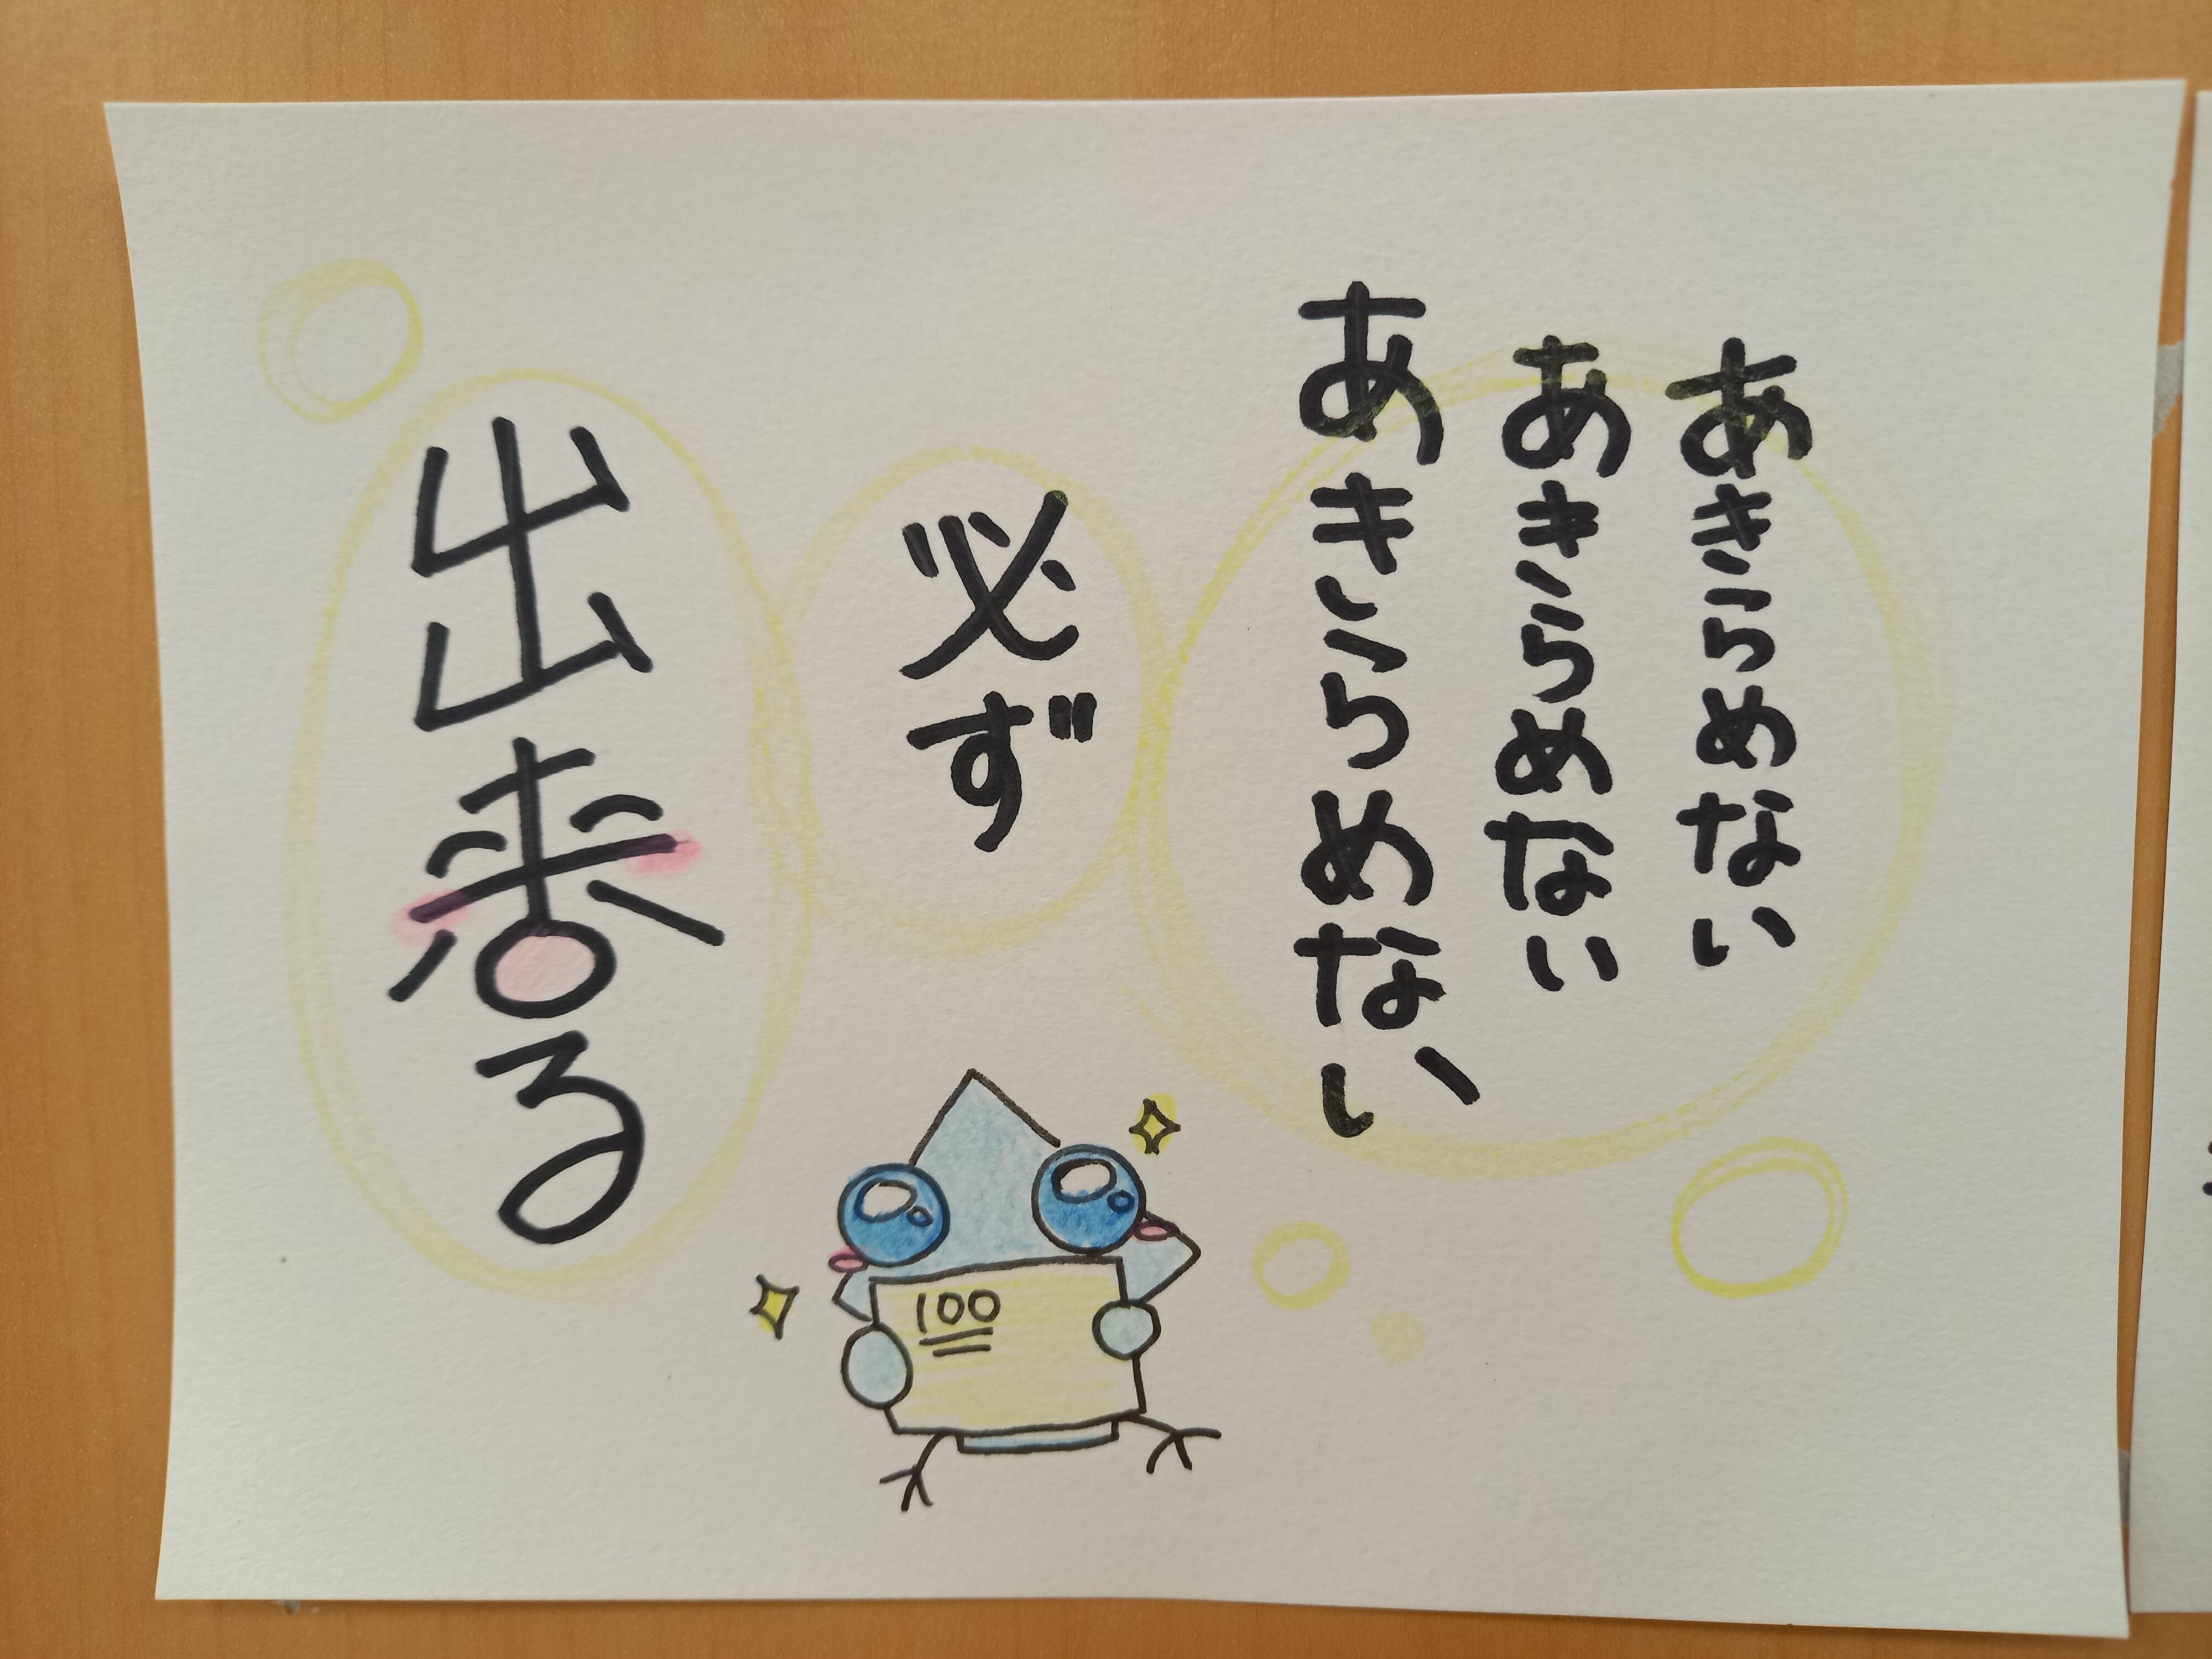 あきらめない
あきらめない
あきらめない
必ず
出来る
100